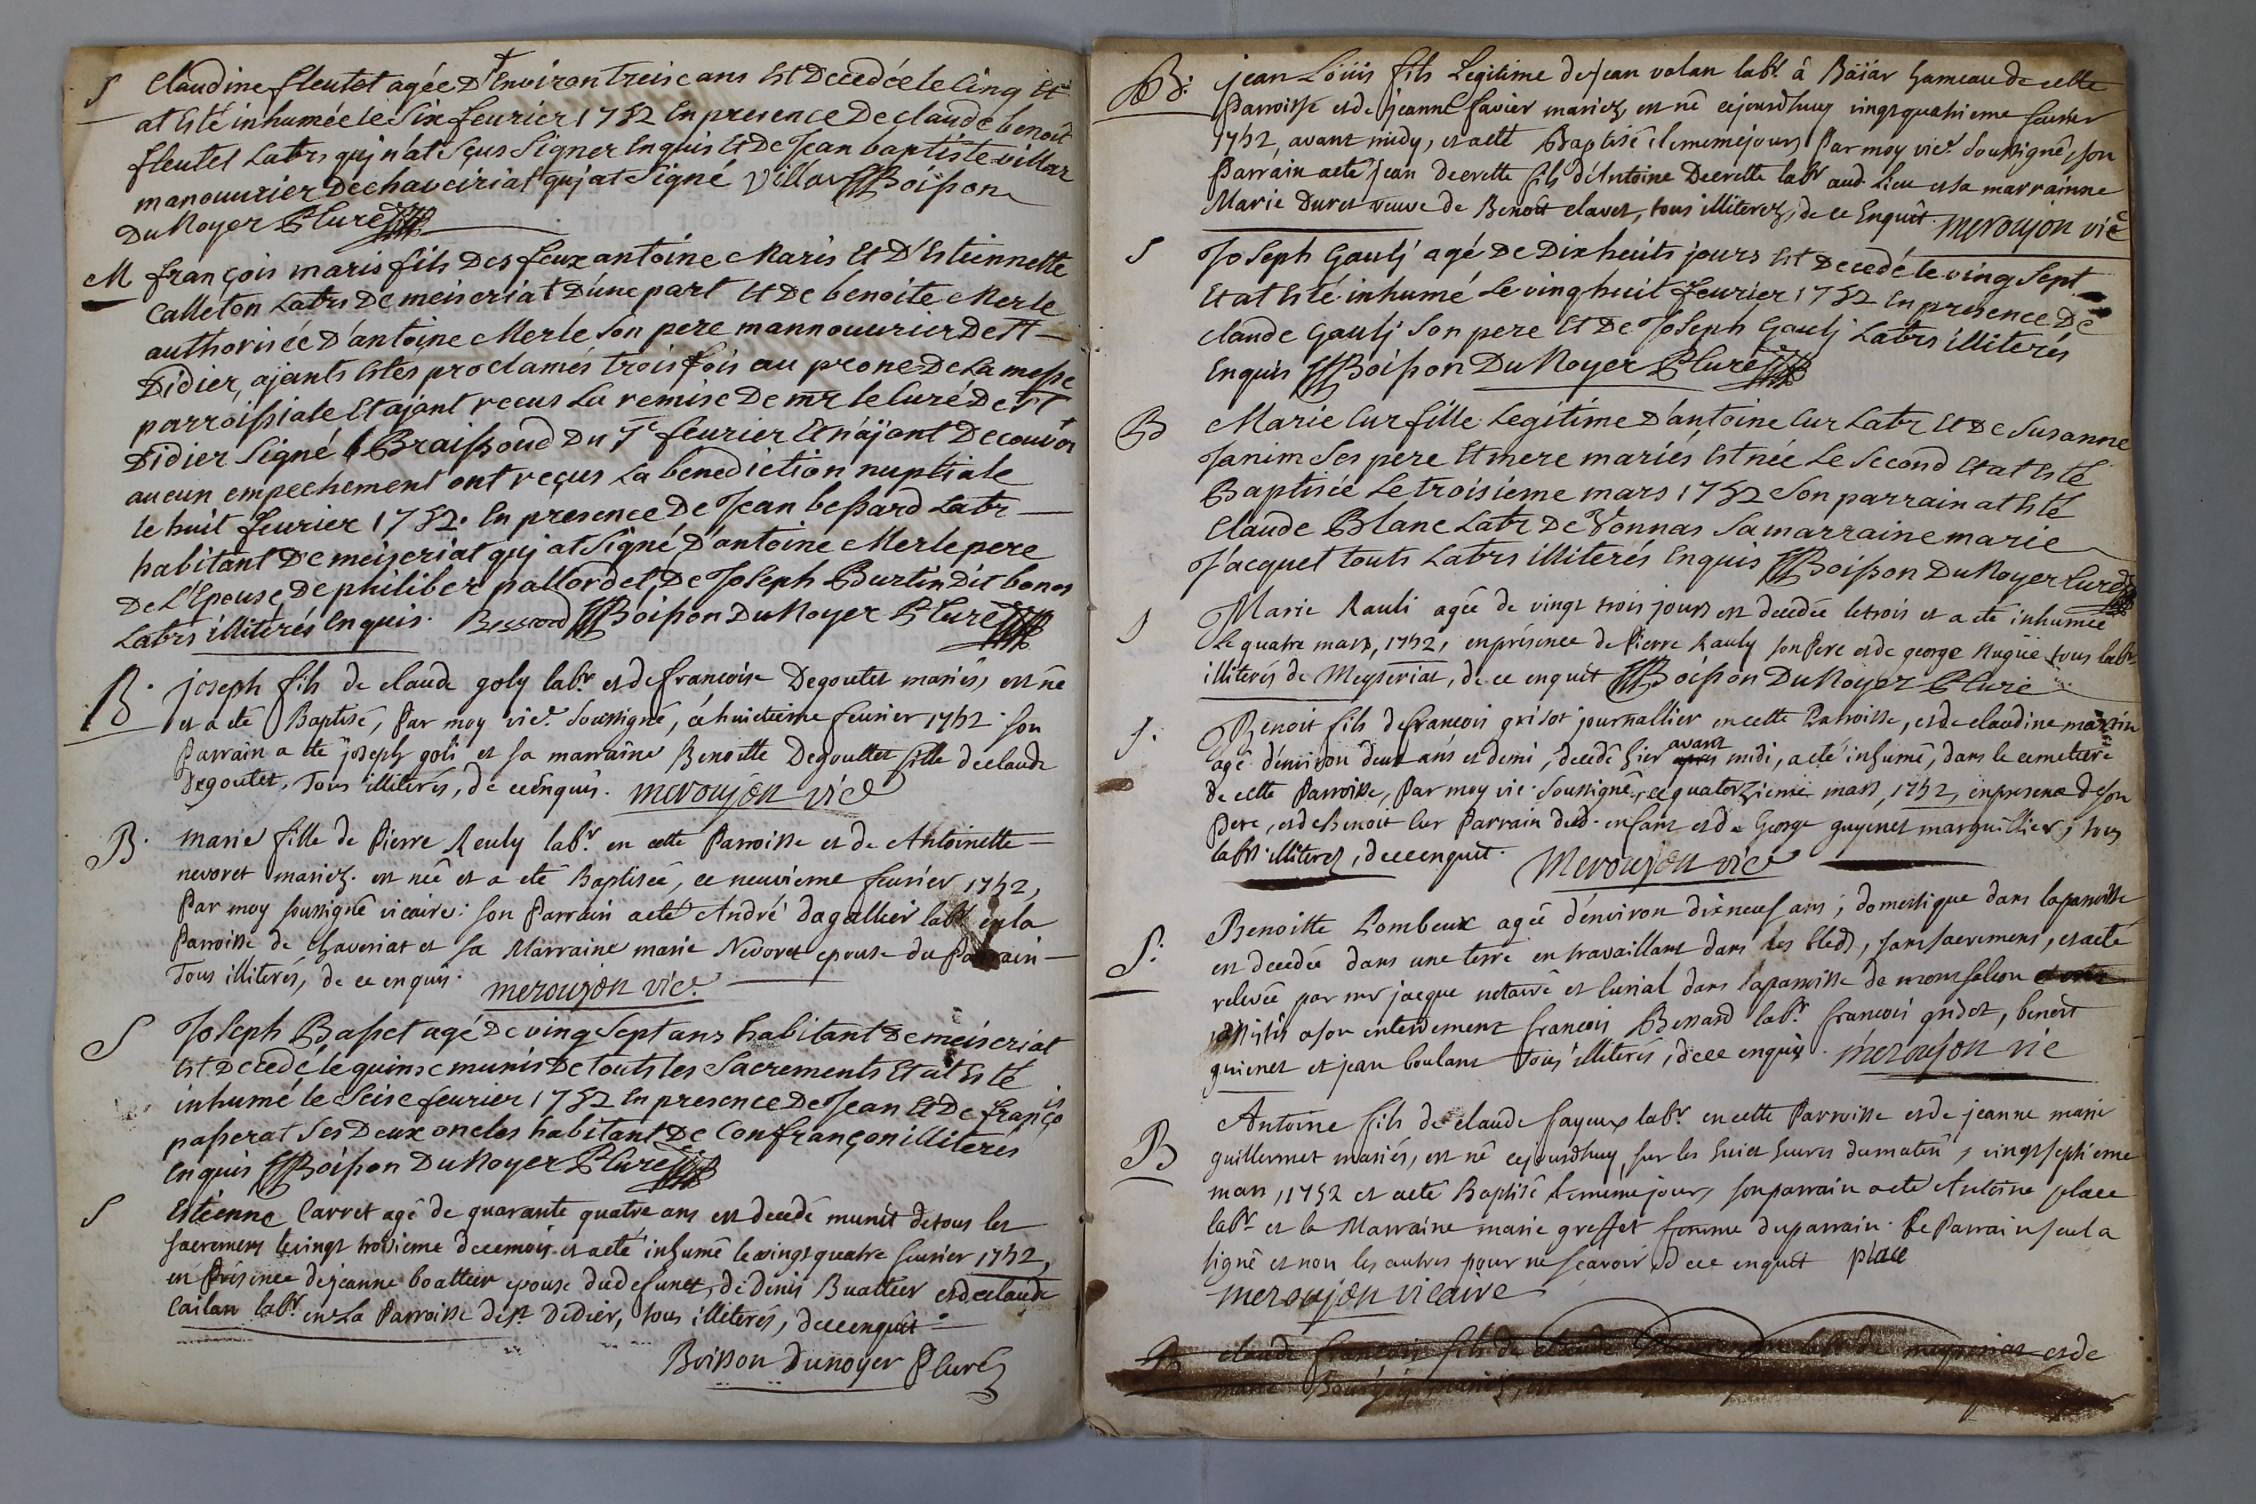 S Claudine fleutet agée D'Environ treise ans Est Decedée le Cinq Et
at Esté inhumée le Six feurier 1752 En presence De claude benoit
fleutet Labrs quj n'at Sçus Signer Enquis Et De Jean baptiste villar
manouurier De chaveiriat quj at Signé Villar Boisson
Du Noyer P Curé
M françois maris fils Des feux antoine Maris Et D'Estiennette
Calleton Labrs De meiseriat D'une part Et De benoite Merle
authorisée D'antoine Merle Son pere mannouurier De St
Didier, ajants Estés proclamés trois fois au prone De La messe
parroissiale Et ajant recus La remise De mr le Curé De St
Didier Signé Braissoud Du 7e feurier Et n'ajant Decouvert
aucun empechement ont reçus La benediction nuptiale
le huit feurier 1752. En presence De Jean bessard Labr
habitant De meiseriat quj at Signé, D'antoine Merle pere
De L'Epouse, De philiber pallordet, De Joseph Burtin Dit bonos
Labrs illiterés Enquis. Bessard Boisson Du Noyer P Curé
B. joseph fils de claude goly labr. et de francoise Degoutet mariés, est né
et a eté Baptisé, Par moy vice. Soussigné, ce huictieme feurier 1752. son
Parrain a ete joseph goli et sa marraine Benoitte Degouttet fille de claude
Degoutet, Tous illiterés, de ce enquis. meroujon vice
B. marie fille de Pierre Reuly labr. en cette Parroisse et de Antoinette
nevoret mariez. est née et a eté Baptisée, ce neuvieme feurier 1752,
Par moy soussigné vicaire: son Parrain a eté André dagallier labr en la
Parroisse de chaveriat et sa Marraine marie Nevoret epouse du Parrain
Tous illiterés, de ce enquis. meroujon vice.
S Joseph Basset agé De ving Sept ans habitant De meiseriat
Est Decedé le quinse munis De touts les Sacrements Et at Esté
inhumé le Seise feurier 1752 En presence De Jean Et De françois
passerat Ses Deux oncles habitant De Confrançon illiterés
Enquis Boisson Du Noyer P Curé
S Estienne Carret agé de quarante quatre ans est decedé munit de tous les
sacremens le vingt troisieme de ce mois et a eté inhumé le vingt quatre feurier 1752,
en Présence de jeanne boatteur epouse du defunct, de Denis Buatteur et de claude
Cailan labr. en La Parroisse de st Didier, tous illiterés, de ce enquit
Boisson Dunoyer P Curé
B. jean Loüis fils Legitime de jean volan labr. à Baïar hameau de cette
Parroisse et de jeanne favier mariez, est né cejourdhuy vingt quatrieme feurier
1752, avant midy, et a eté Baptisé le meme jour, Par moy vice. Soussigné, son
Parrain a eté jean Decrette fils d'Antoine Decrette labr aud. Lieu et sa marrainne
Marie Duret veuve de Benoit clavet, tous illiterez, de ce Enquit. meroujon vice
S Joseph Gaulj agé De Dix heuits jours Est Decedé le ving Sept
Et at Esté inhumé Le ving huit feurier 1752 En presence De
claude Gaulj Son pere Et De Joseph Gaulj Labrs illiterés
Enquis Boisson Du Noyer P Curé
B Marie Cur fille Legitime D'antoine Cur Labr Et De Susanne
Janim Ses pere Et mere mariés Est née Le Second Et at Esté
Baptisée Le troisieme mars 1752 Son parrain at Esté
Claude Blanc Labr De Vonnas Sa marraine marie
Jacquet touts Labrs illiterés Enquis Boisson Du Noyer Curé
S Marie Rauli agée de vingt trois jours est decedée le trois et a eté inhumée
le quatre mars, 1752, en présence de Pierre Rauly son Pere et de george Nugüe tous labrs
illiterés de Meyseriat, de ce enquit Boisson Du Noyer P Curé
S. Benoit fils de francois grisot journallier en cette Parroisse, et de claudine martin
agé d'environ deux ans et demi, decedé hier avant midi, a eté inhumé, dans le cemettere
de cette Parroisse, Par moy vic. soussigné, ce quatorzieme mars, 1752, en presence de son
Pere, et de Benoit Cur Parrain dud. enfant et de George guyenet marguillier, tous
labrs illiterez, de ce enquit. Meroujon vice
S. Benoitte Lombeux agée d'environ dixneuf ans, domestique dans la parroisse
est decedée dans une terre en travaillant dans les bleds, sans sacrement, et a eté
relevée par mr jacque notaire et Curial dans la parroisse de
assistés a son enterrement francois Bessard labr. francois grisot, benoit
guienet et jean boulant tous illiterés, de ce enquis. meroujon vic
B Antoine fils de claude fayeux labr. en cette Parroisse et de jeanne marie
guillermet mariés, est né cejourdhuy, sur les huict heures du matin, vingt septieme
mars, 1752 et a eté Baptisé le meme jour, son parrain a eté Antoine place
labr. et la Marraine marie greffet femme du parrain. Le Parrain seul a
signé et non les autres pour ne scavoir de ce enquit place
meroujon vicaire
B claude francois fils de claude labr de meyseriat et de
marie